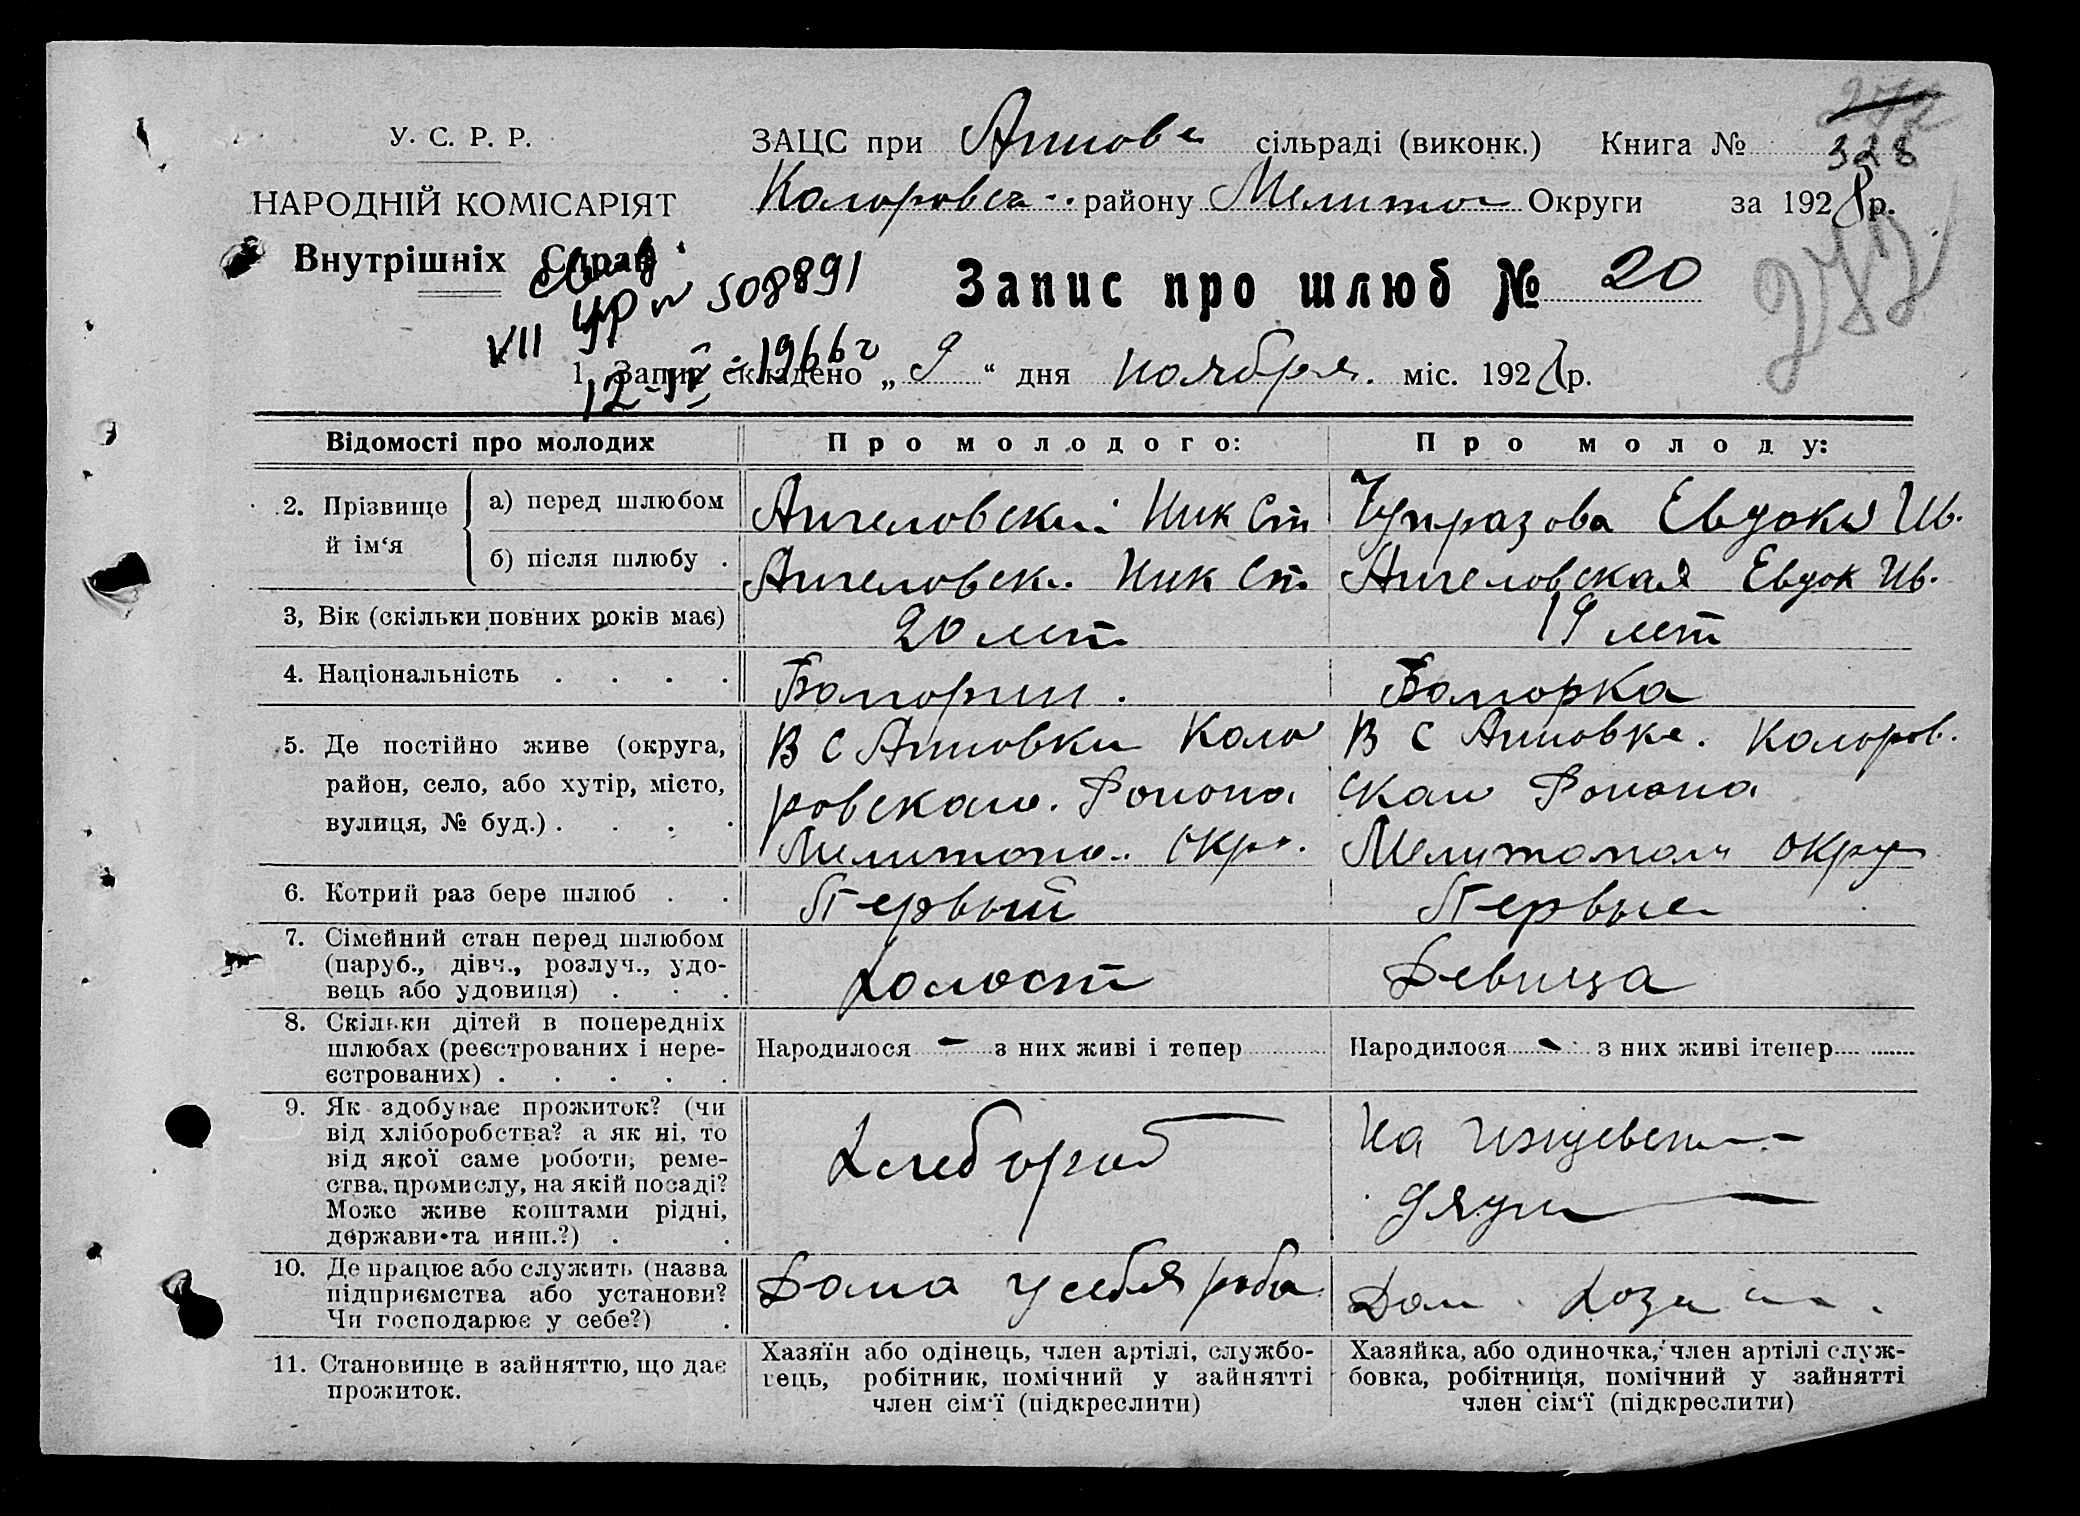 У. С. Р. Р.
НАРОДНІЙ КОМІСАРІЯТ
Внутрішніх Справ
ЗАЦС при сільраді (виконк.) Книга № 328
Коларовск.. району Мелитоп Округи за 1928 р.
Запис про шлюб № 20
508891
VII
12-IV-1966 г
1. Запис складено „ 9 “ дня ноября. міс. 1928 р.
Відомості про молодих
Про молодого:
Про молоду:
2. Прізвище й ім‘я
а) перед шлюбом
Ангеловский Ник Ст
Чупразова Евдоки Ив.
б) після шлюбу .
Ангеловск.. Ник Ст.
Ангеловская Евдок Ив.
3, Вік (скільки повних років має)
20 лет
19 лет
4. Національність . . . .
Болгорин.
Болгорка
5. Де постійно живе (округа,
район, село, або хутір, місто,
вулиця, № буд.) . . . .
В С Коло
ровскаго. Района
Мелитопо.. Окр..
В С Колоров.
скаго Района
Мелитопол округ
6. Котрий раз бере шлюб . .
Первый
Первые
7. Сімейний стан перед шлюбом
(паруб., дівч., розлуч., удо-
вець або удовиця) . . .
Холост
Девица
8. Скільки дітей в попередніх
шлюбах (реєстрованих і нере-
єстрованих) . . . . .
Народилося — з них живі і тепер
Народилося — з них живі ітепер
9. Як здобуває прожиток? (чи
від хліборобства? а як ні, то
від якої саме роботи, реме-
ства, промислу, на якій посаді?
Може живе коштами рідні,
держави та инш.?) . .
Хлебороб
На иждевен
дяди
10. Де працює або служить (назва
підприємства або установи?
Чи господарює у себе?) .
Дома у себя робо
Дом.
11. Становище в зайняттю, що дає
прожиток.
Хазяїн або одінець, член артілі, службо-
вець, робітник, помічний у зайнятті
член сім‘ї (підкреслити)
Хазяйка, або одиночка, член артілі служ-
бовка, робітниця, помічний у зайнятті
член сім‘ї (підкреслити)